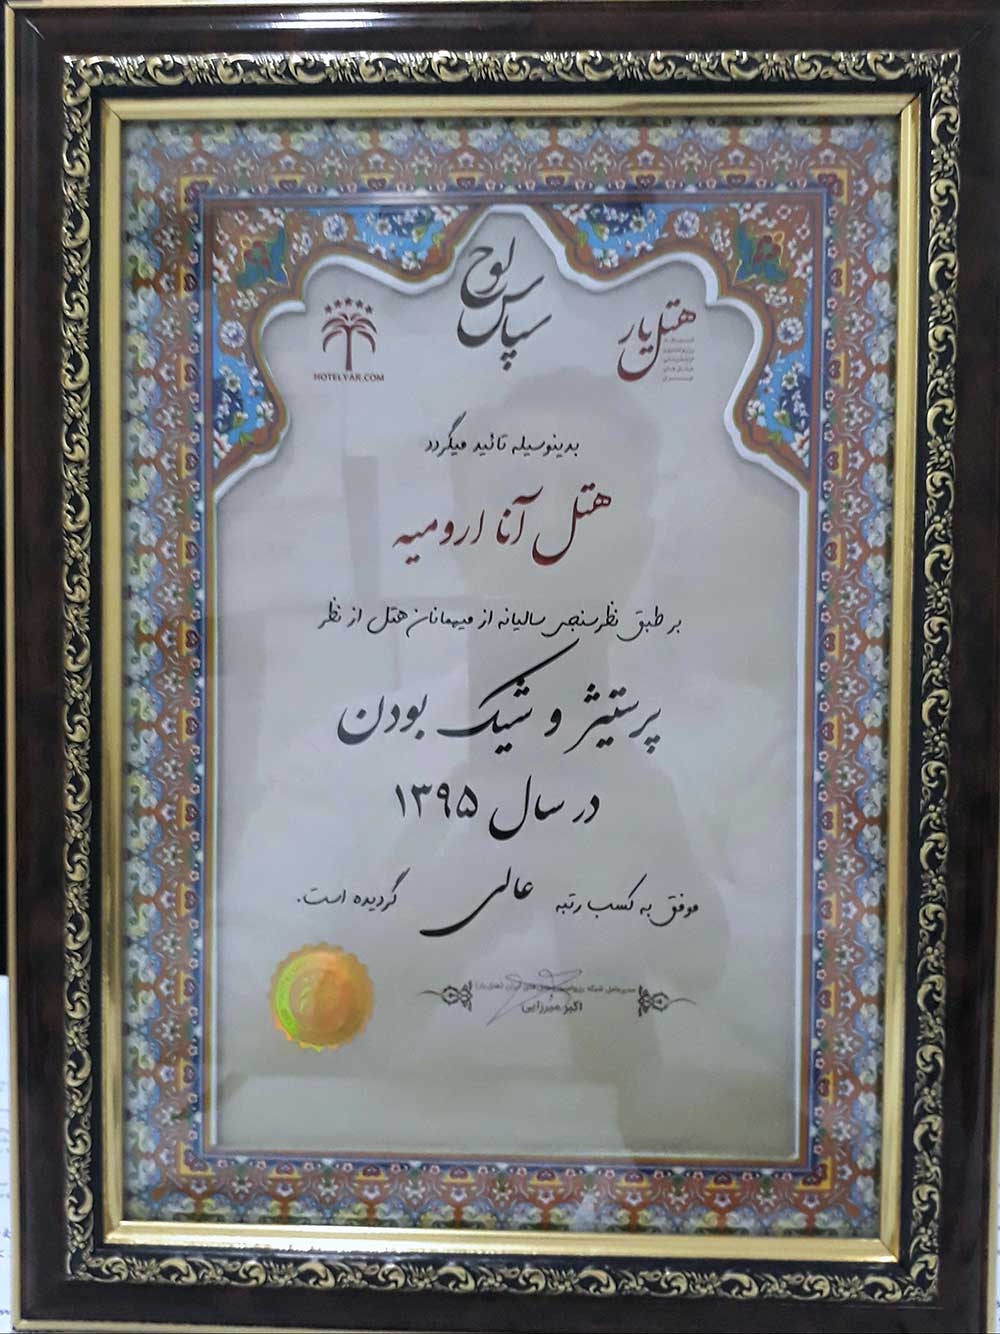 لوح
سپاس
هتل یار
HOTELYAR.COM
بدینوسیله تائید میگردد
هتل آنا ارومیه
بر طبق نظرسنجی سالیانه از میهمانان هتل از نظر
پرستیژ و شیک بودن
در سال ۱۳۹۵
موفق به کسب رتبه عالی گردیده است.
مدیرعامل شبکه رزرواسیون هتل های ایران (هتل یار)
اکبر میرزایی